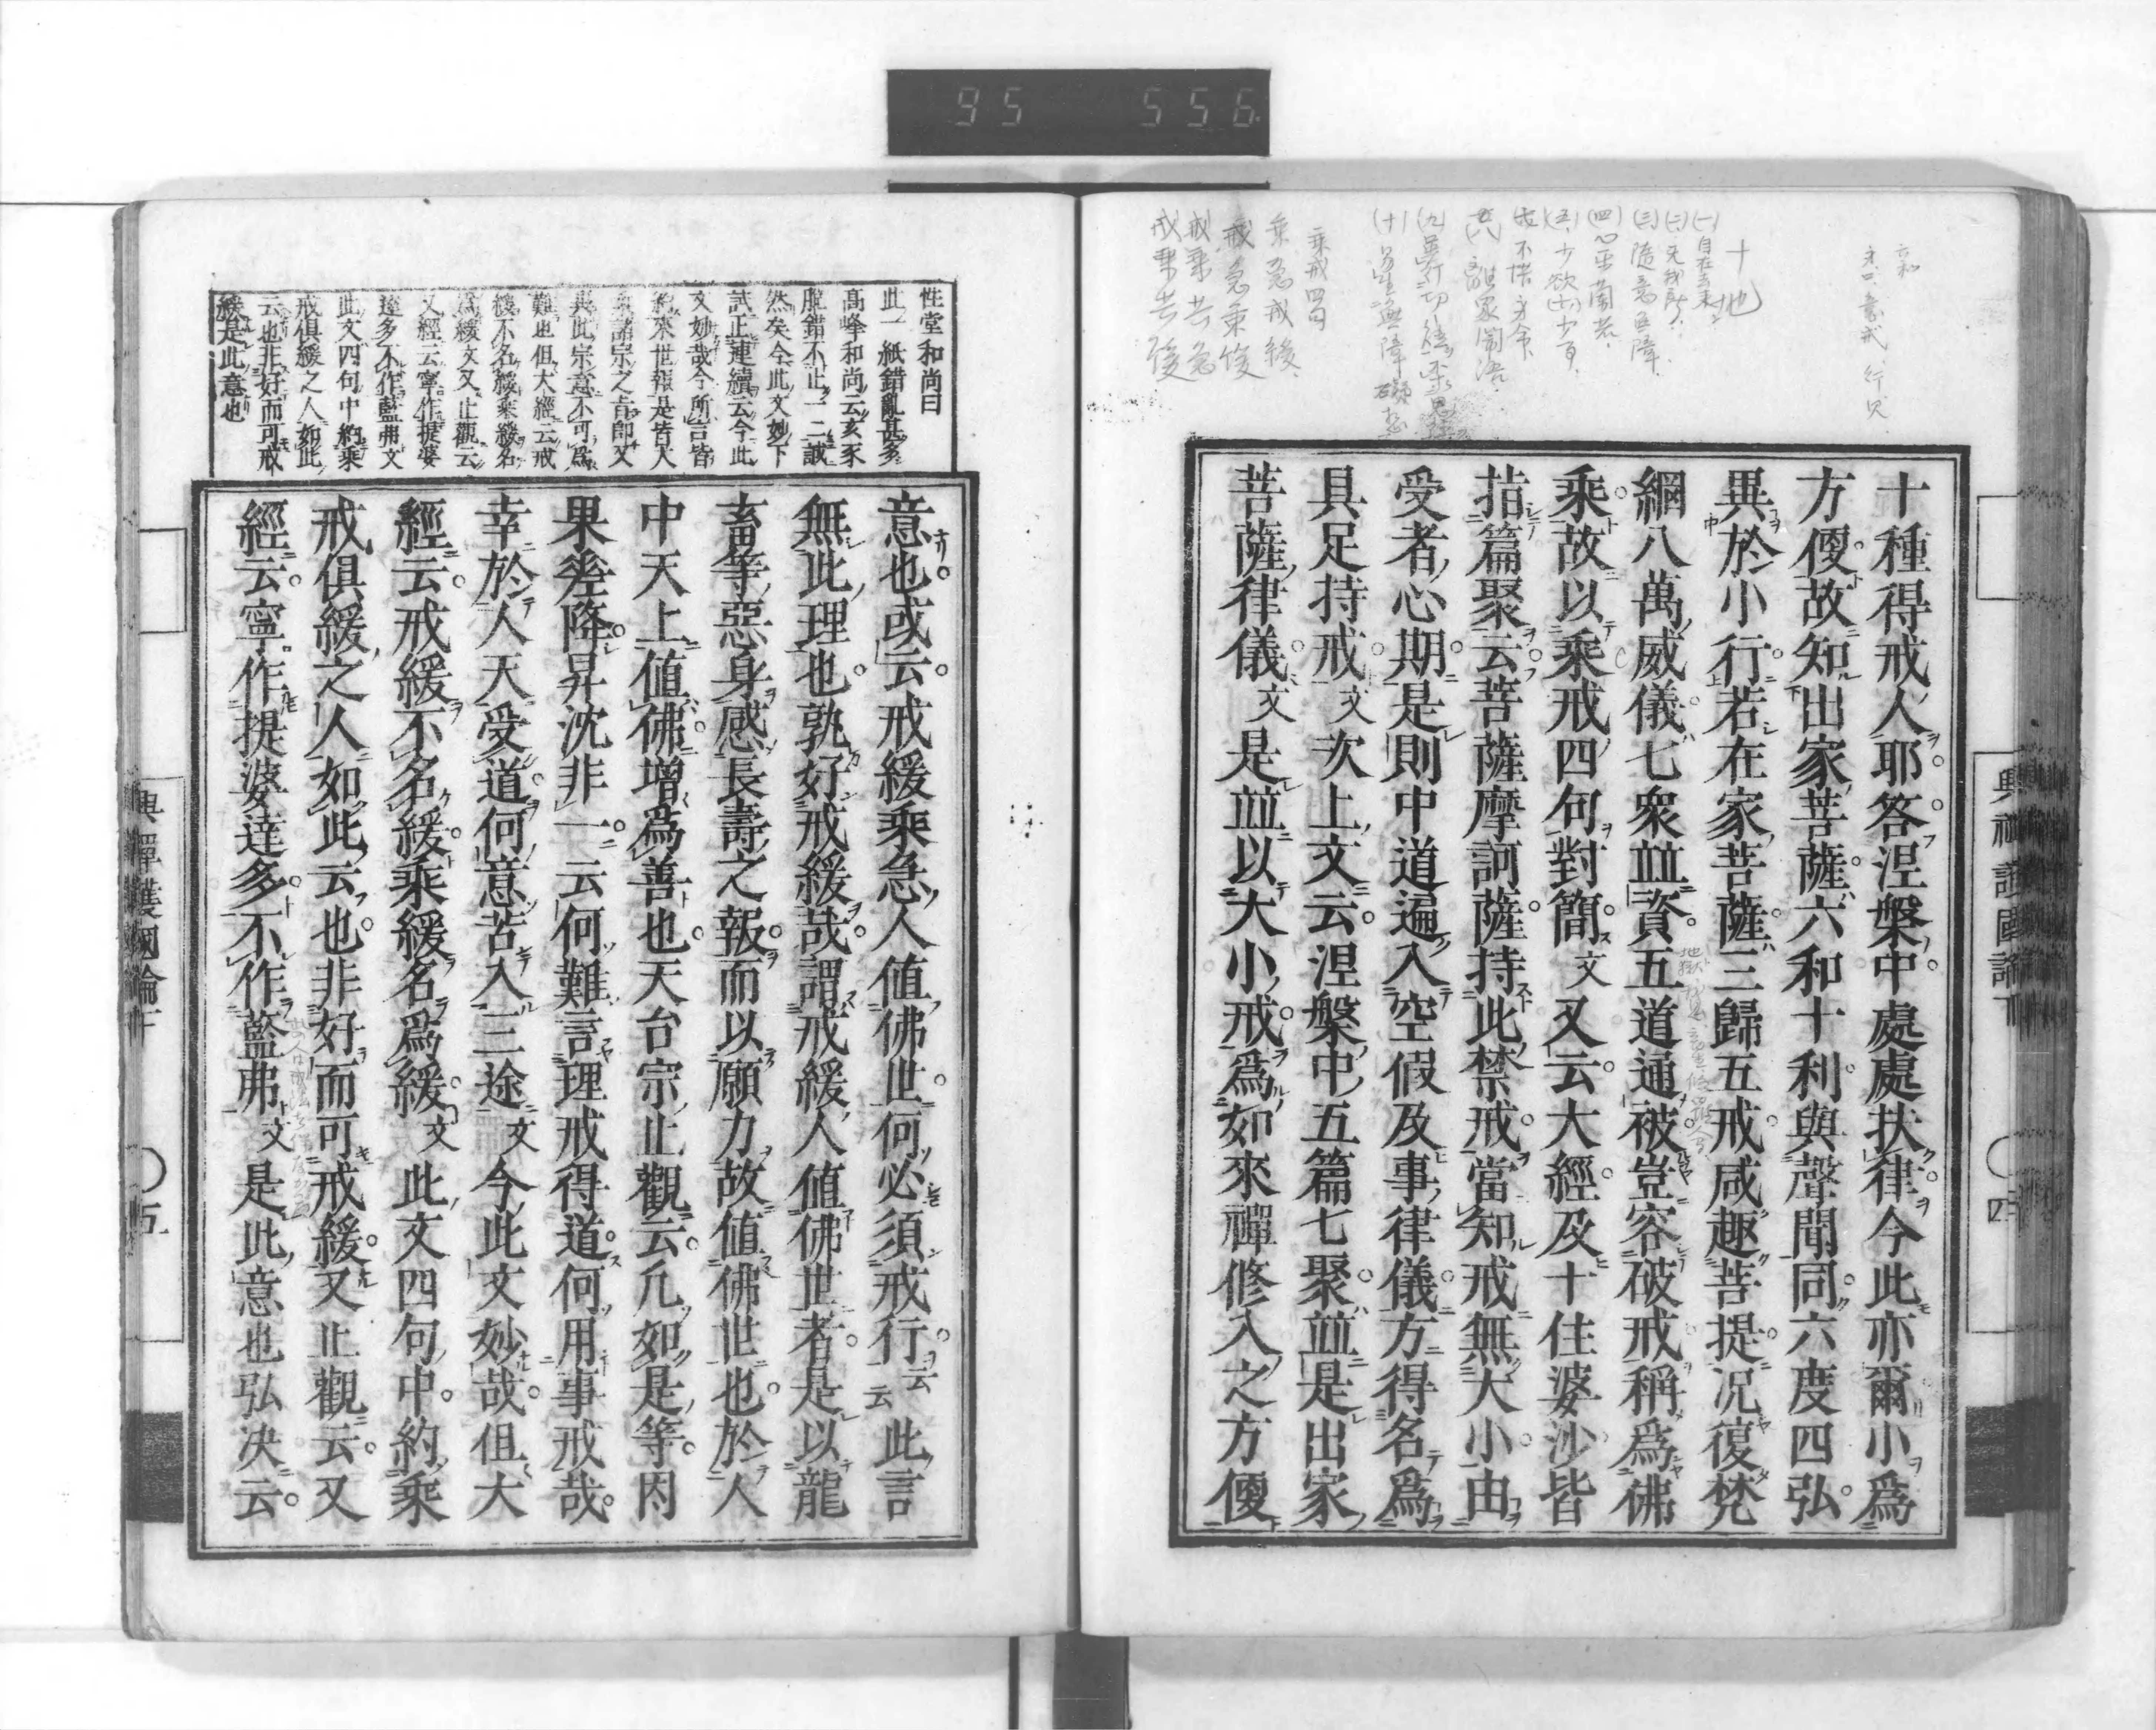 95 556
十種得戒人耶答涅槃中處處扶律今此亦爾小爲
方便故知出家菩薩六和十利與聲聞同六度四弘
異於小行若在家菩薩三歸五戒咸趣菩提況復梵
網八萬威儀七衆並資五道通被豈容破戒稱爲佛
乘故以乘戒四句對簡文又云大經及十住婆沙皆
指篇聚云菩薩摩訶薩持此禁戒當知戒無大小由
受者心期是則中道遍入空假及事律儀方得名爲
具足持戒文次上文云涅槃中五篇七聚並是出家
菩薩律儀文是並以大小戒爲如來禪修入之方便
興禪護國論下
四
十地
六和
乘戒四句
乘急戒緩
戒急乘緩
戒乘共急
戒乘共緩
性堂和尚曰
此一紙錯亂甚多
高峰和尚云亥豕
脫錯不止一二誠
然矣今此文妙下
試正連續云今此
文妙哉今所言皆
約來世報是皆大
乘諸宗之旨卽又
興此宗意不可爲
難也但大經云戒
緩不名緩乘緩名
爲緩文又止觀云
又經云寧作提婆
達多不作藍弗文
此文四句中約乘
戒俱緩之人如此
云也非好而可戒
緩是此意也
意也或云戒緩乘急人値佛世何必須戒行云云此言
無此理也孰好戒緩哉謂戒緩人値佛世者是以龍
畜等惡身感長壽之報而以願力故値佛世也於人
中天上値佛增爲善也天台宗止觀云凡如是等因
果差降昇沈非一云何難言理戒得道何用事戒哉
幸於人天受道何意苦入三途文今此文妙哉但大
經云戒緩不名緩乘緩名爲緩文此文四句中約乘
戒俱緩之人如此云也非好而可戒緩又止觀云又
經云寧作提婆達多不作藍弗文是此意也弘决云
興禪護國論下
五